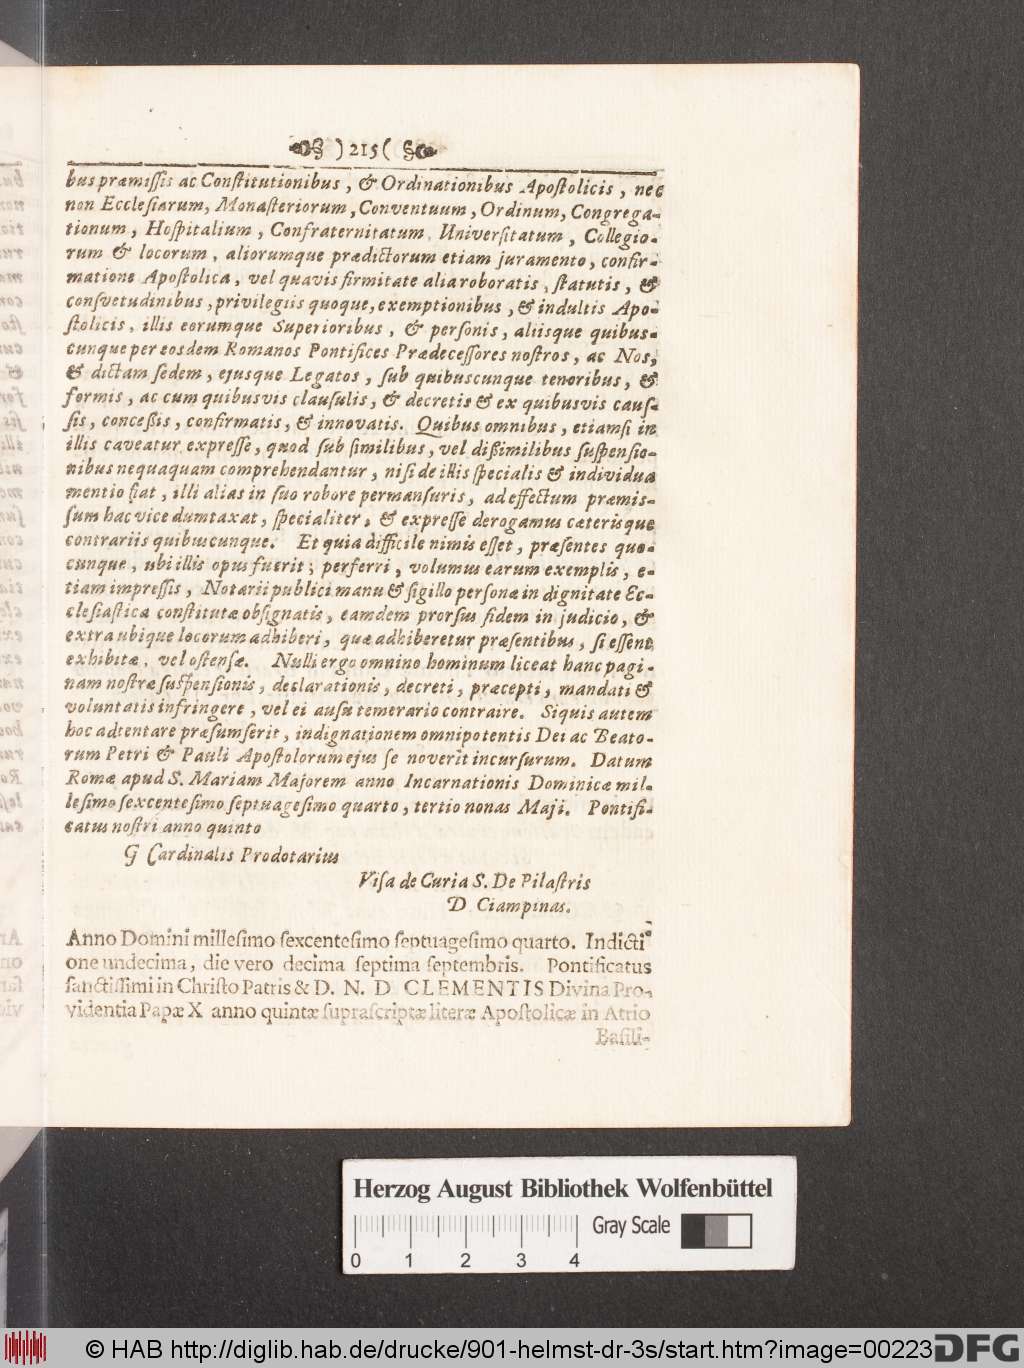 )215(
bus præmissis ac Constitutionibus, & Ordinationibus Apostolicis, nec
non Ecclesiarum, Monasteriorum, Conventuum, Ordinum, Congrega-
tionum, Hospitalium, Confraternitatum Universitatum, Collegio-
rum & locorum, aliorumque prædictorum etiam juramento, confir-
matione Apostolica, vel quavis firmitate alia roboratis, statutis, &
consvetudinibus, privilegiis quoque, exemptionibus, & indultis Apo-
stolicis, illis eorumque Superioribus, & personis, aliisque quibus-
cunque per eosdem Romanos Pontifices Prædecessores nostros, ac Nos,
& dictam sedem, ejusque Legatos, sub quibuscunque tenoribus, &
formis, ac cum quibusvis clausulis, & decretis & ex quibusvis caus-
sis, concessis, confirmatis, & innovatis. Quibus omnibus, etiamsi in
illis caveatur expresse, quod sub similibus, vel dissimilibus suspensio-
nibus nequaquam comprehendantur, nisi de illis specialis & individua
mentio fiat, illi alias in suo robore permansuris, ad effectum præmis-
sum hac vice dumtaxat, specialiter, & expresse derogamus cæterisque
contrariis quibuscunque. Et quia difficile nimis esset, præsentes quo-
cunque, ubi illis opus fuerit; perferri, volumus earum exemplis, e-
tiam impressis, Notarii publici manu & sigillo personæ in dignitate Ec-
clesiastica constitutæ obsignatis, eamdem prorsus fidem in judicio, &
extra ubique locorum adhiberi, quæ adhiberetur præsentibus, si essent
exhibitæ, vel ostensæ. Nulli ergo omnino hominum liceat hanc pagi-
nam nostræ suspensionis, declarationis, decreti, præcepti, mandati &
voluntatis infringere, vel ei ausu temerario contraire. Si quis autem
hoc adtentare præsumserit, indignationem omnipotentis Dei ac Beato-
rum Petri & Pauli Apostolorum ejus se noverit incursurum. Datum
Romæ apud S. Mariam Majorem anno Incarnationis Dominicæ mil-
lesimo sexcentesimo septuagesimo quarto, tertio nonas Maji. Pontifi-
catus nostri anno quinto
G Cardinalis Prodotarius
Visa de Curia S. De Pilastris
D Ciampinas.
Anno Domini millesimo sexcentesimo septuagesimo quarto. Indicti-
one undecima, die vero decima septima septembris. Pontificatus
sanctissimi in Christo Patris & D. N. D CLEMENTIS Divina Pro-
videntia Papæ X anno quintæ suprascriptæ literæ Apostolicæ in Atrio
Basili-
Herzog August Bibliothek Wolfenbüttel
0 1 2 3 4 Gray Scale
© HAB http://diglib.hab.de/drucke/901-helmst-dr-3s/start.htm?image=00223
DFG